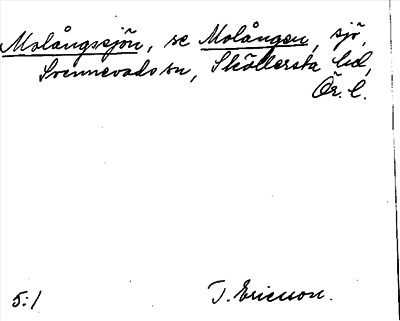 Molångssjön, se Molången, sjö,
Svennevads sn, Sköllersta hd,
Ör. l.
5:1
T. Ericsson.